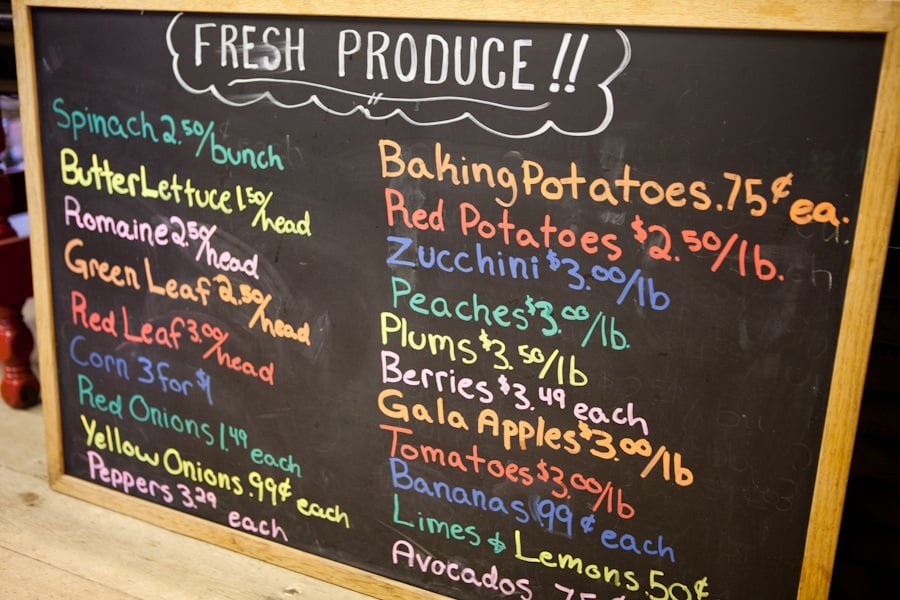 FRESH PRODUCE!!
Spinach 2.50/bunch
Butter Lettuce 1.50/head
Romaine 2.50/head
Green Leaf 2.50/head
Red Leaf 3.00/head
Corn 3 for $1
Red Onions 1.49 each
Yellow Onions .99¢ each
Peppers 3.29 each
Baking Potatoes .75¢ ea.
Red Potatoes $2.50/lb.
Zucchini $3.00/lb
Peaches $3.00/lb.
Plums $3.50/lb
Berries $3.49 each
Gala Apples $3.00/lb
Tomatoes $3.00/lb
Bananas .99¢ each
Limes & Lemons .50¢
Avocados .75¢